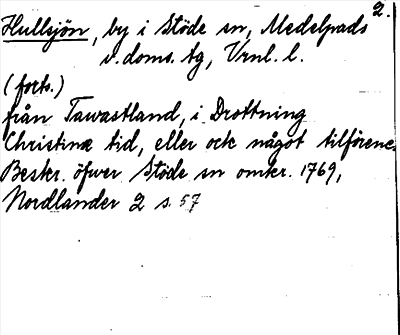 2.
Hullsjön, by i Stöde sn, Medelpads
v. doms. tg, Vrnl. l.
(forts.)
från Tawastland, i Drottning
Christinæ tid, eller ock något tilförene.
Beskr. öfwer Stöde sn omkr. 1769,
Nordlander 2 s. 57